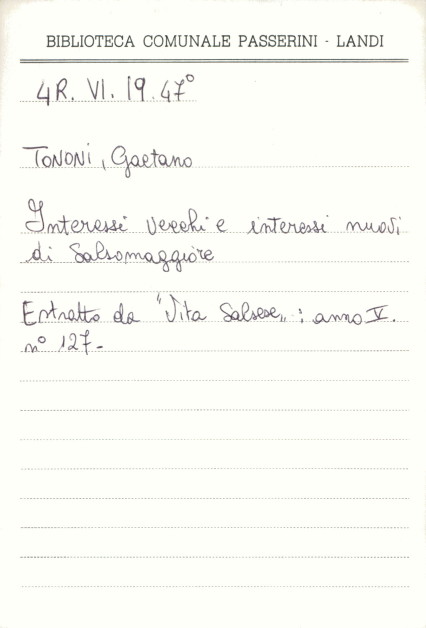 BIBLIOTECA COMUNALE PASSERINI - LANDI
4R. VI. 19. 47°
TONONI, Gaetano
Interessi vecchi e interessi nuovi
di Salsomaggiore
Estratto da "Vita Salsese„ : anno V.
n° 127-